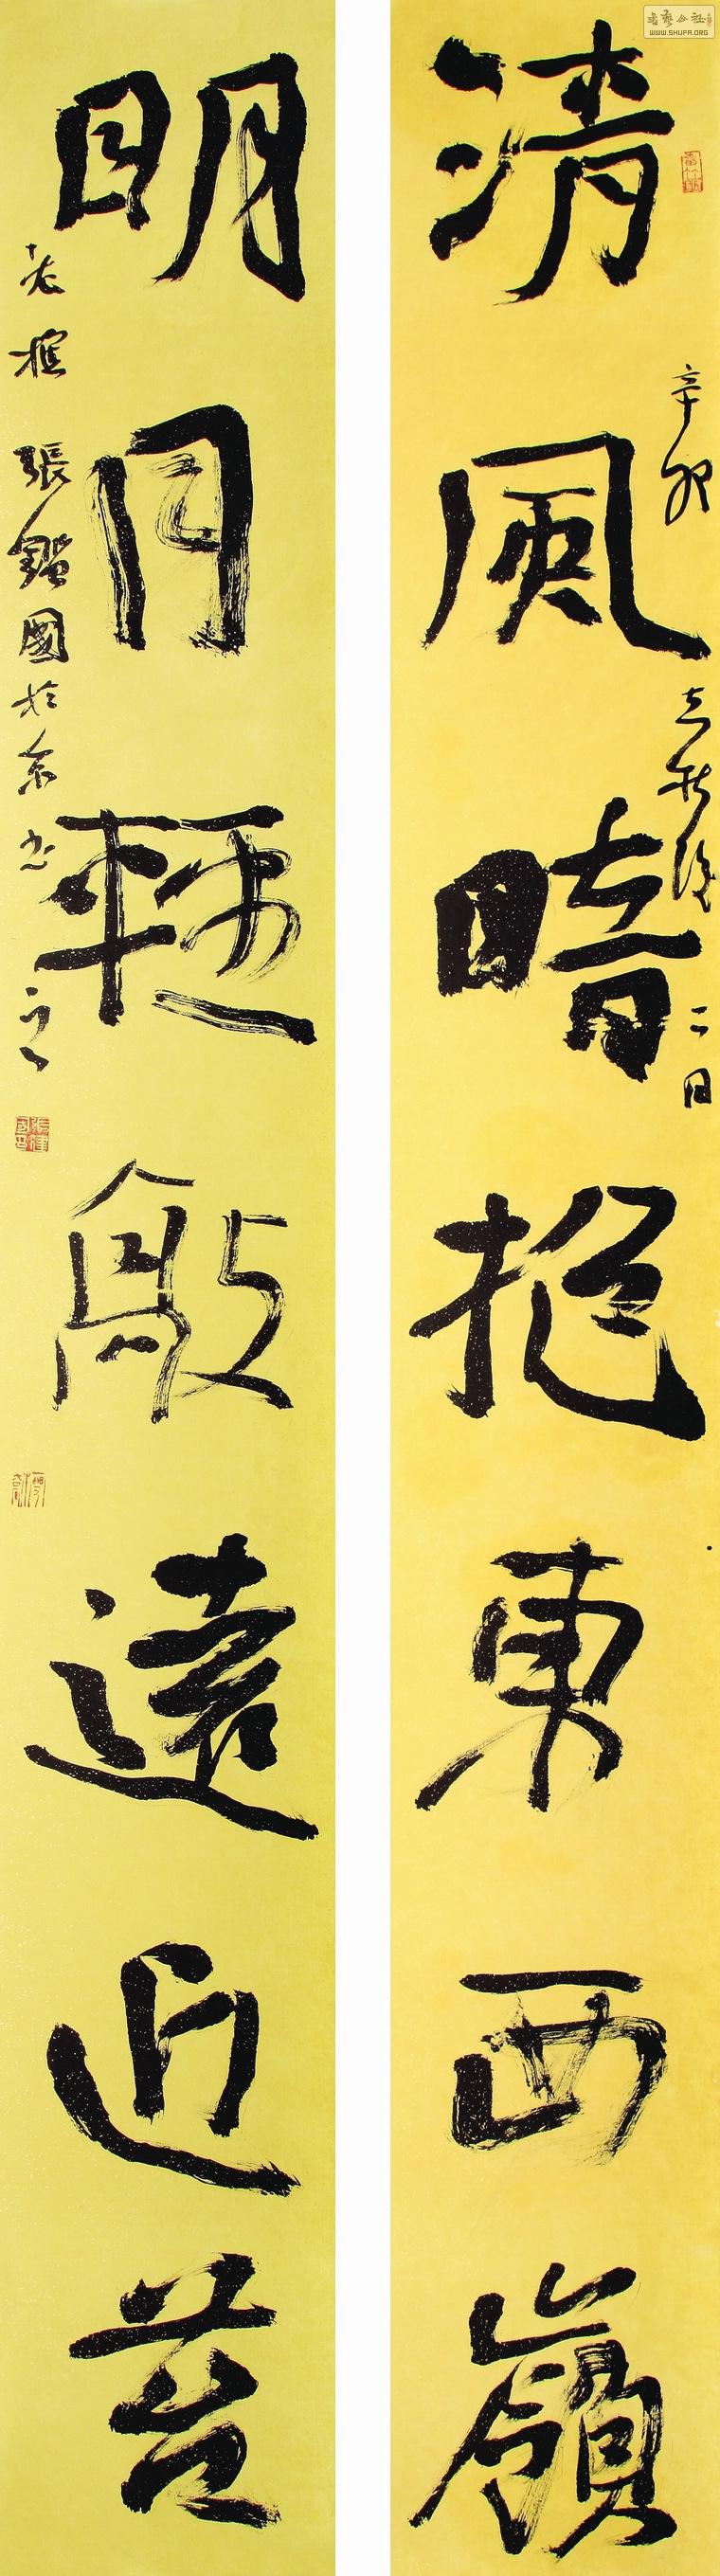 清風晴抱東西嶺
辛卯立秋後二日
明月輕敲遠近苔
老樵張鑑國於京書之
书艺公社
WWW.SHUFA.ORG